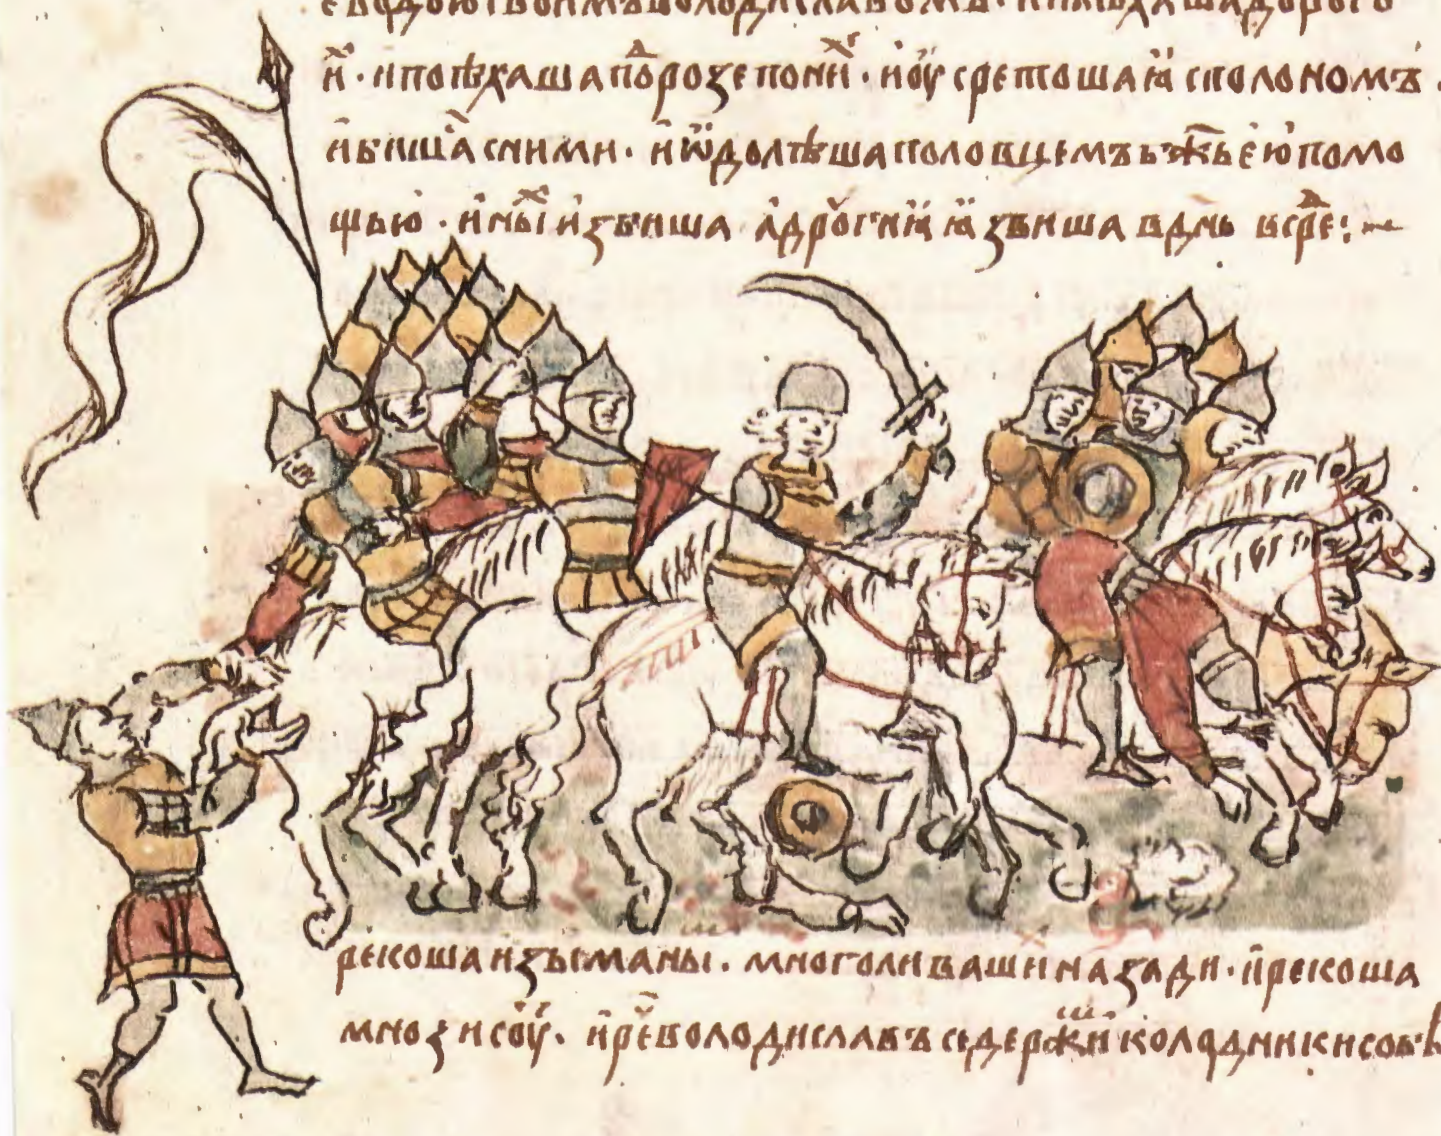 иⷯ · и поѣхаша поⷣрозе по ниⷯ · и оусретоша ꙗ сполономъ ·
и бишасⷶ с ними · и ѿдолѣша половцемъ бж҃ьею помо
щью · и ныⷯ избиша а дрꋋгиꙗ ꙗзъиша в дн҃ь в среⷣ :~
рекоша изъıманы · много ли вашиⷯ назади · и рекоша
мнози соуⷮ · и реⷱ володиславъ се держиⷲ колодники собѣ